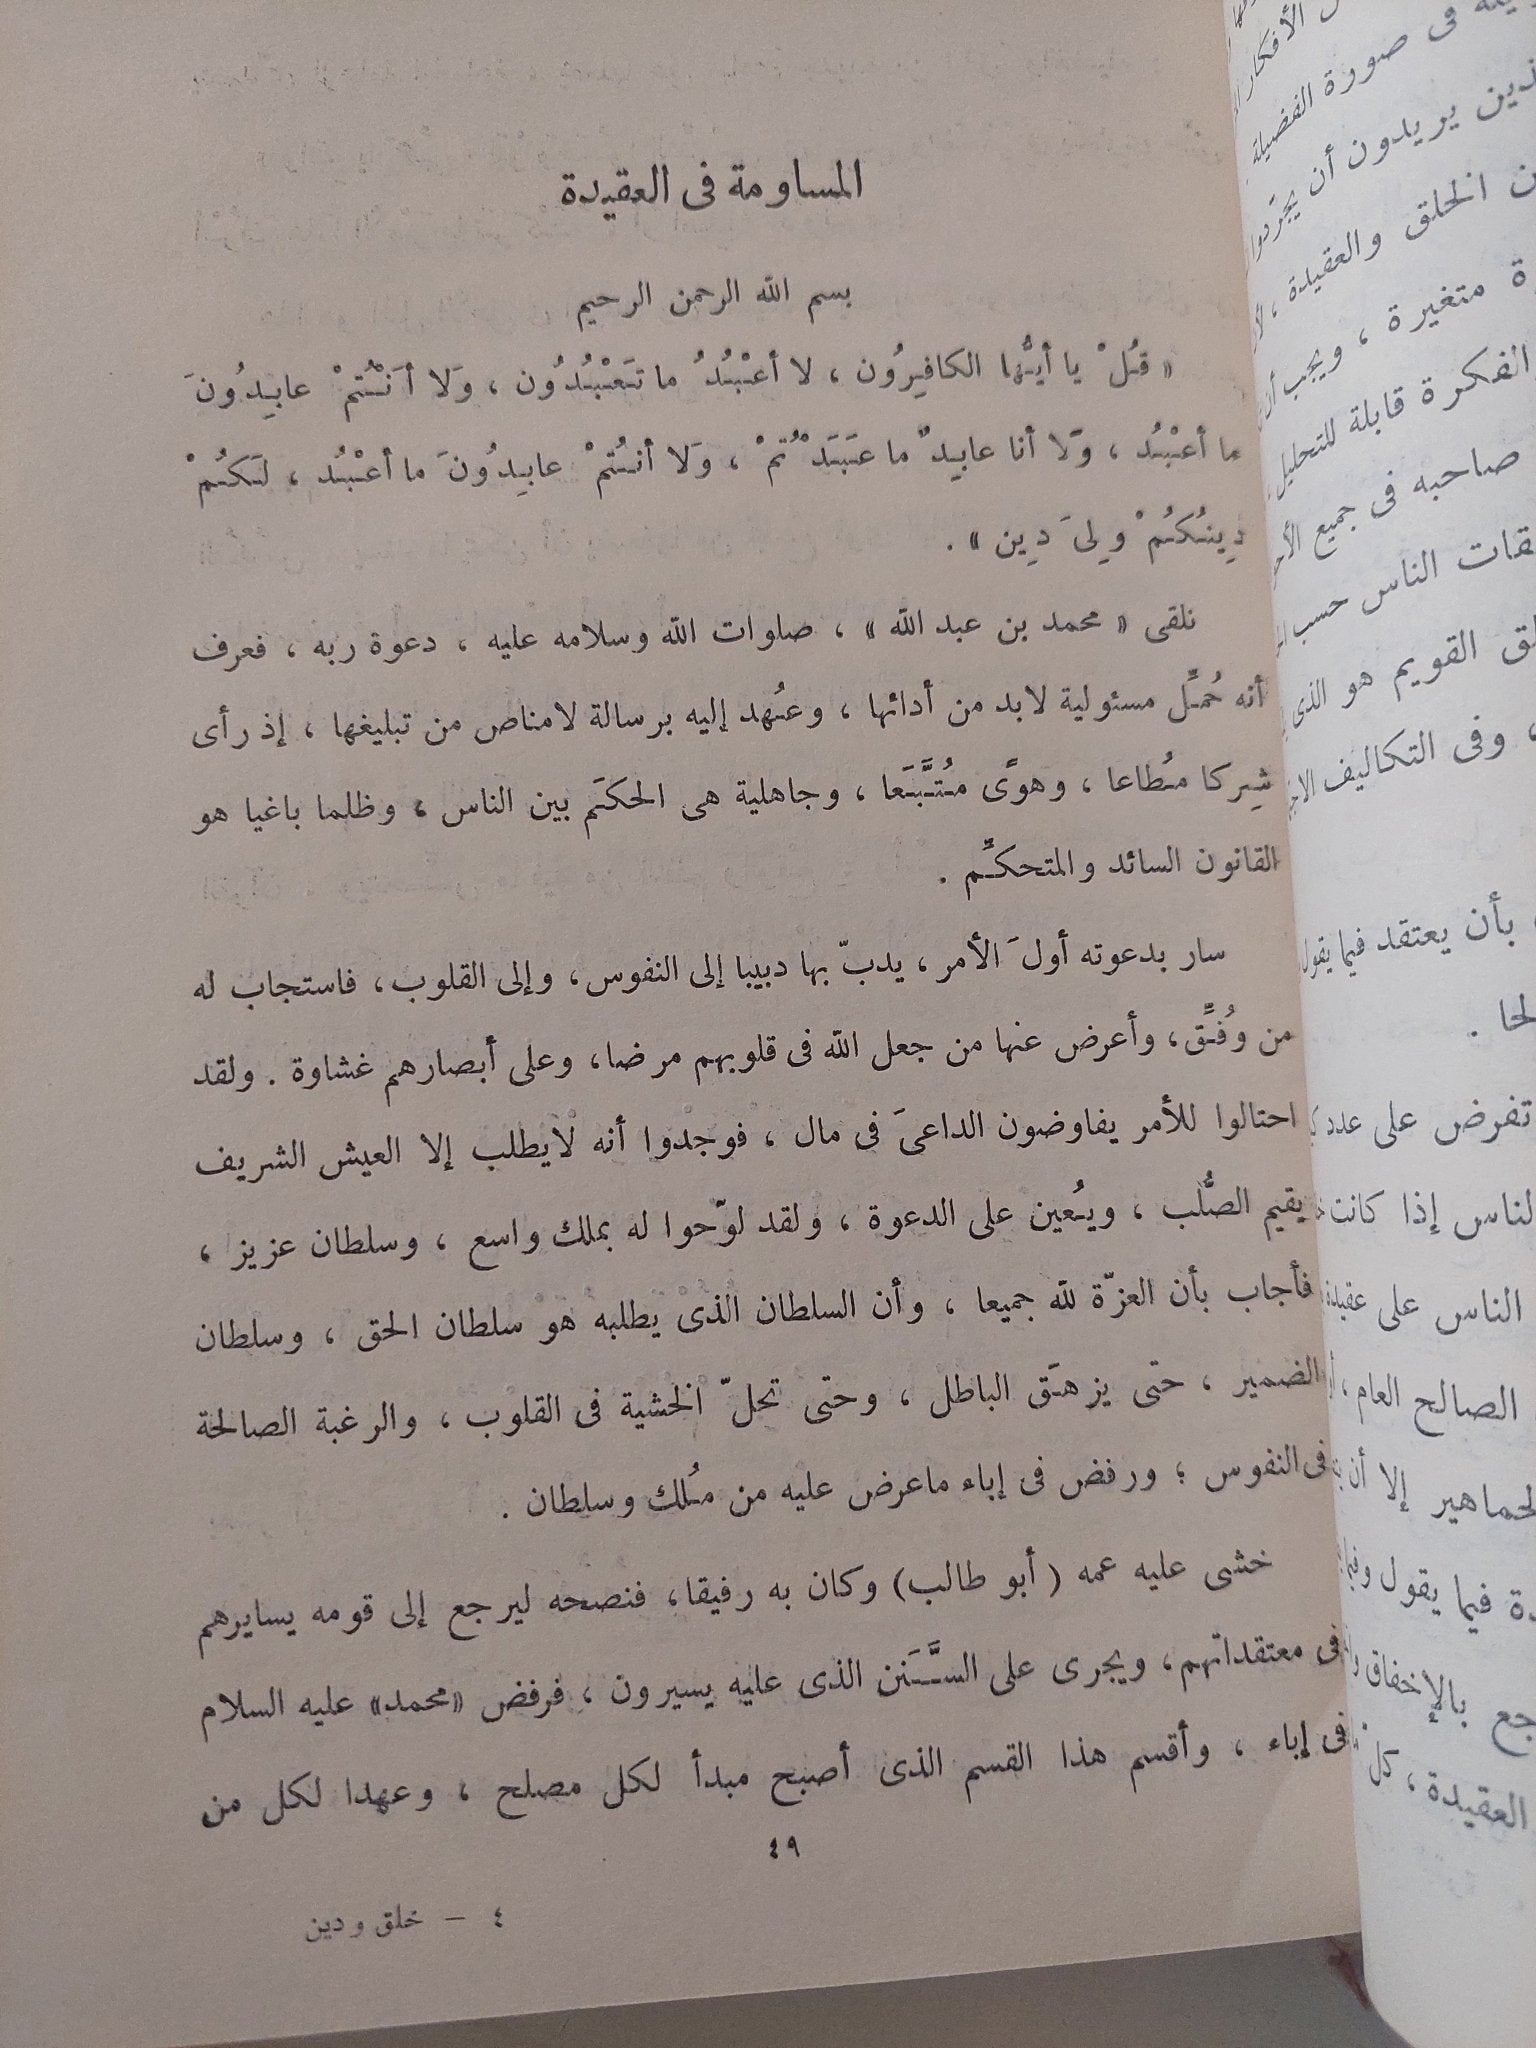 المساومة فى العقيدة
بسم الله الرحمن الرحيم
« قُلْ يا أيُّها الكافِرُون ، لا أعْبُدُ ما تَعْبُدُون ، وَلا أَنْتُمْ عابِدُونَ
ما أعْبُد ، وَلا أنا عابِدٌ ما عَبَدْتُمْ ، وَلا أنتُمْ عابِدُونَ ما أعْبُد ، لَكُمْ
دِينُكُمْ ولِىَ دِين » .
تلقى « محمد بن عبد الله » ، صلوات الله وسلامه عليه ، دعوة ربه ، فعرف
أنه حُمِّل مسئولية لابد من أدائها ، وعُهد إليه برسالة لامناص من تبليغها ، إذ رأى
شِركا مُطاعا ، وهوًى مُتَّبَعا ، وجاهلية هى الحكَم بين الناس ، وظلما باغيا هو
القانون السائد والمتحكِّم .
سار بدعوته أولَ الأمر ، يدبّ بها دبيبا إلى النفوس ، وإلى القلوب ، فاستجاب له
من وُفِّق ، وأعرض عنها من جعل الله فى قلوبهم مرضا ، وعلى أبصارهم غشاوة . ولقد
احتالوا للأمر يفاوضون الداعىَ فى مال ، فوجدوا أنه لايطلب إلا العيش الشريف
يقيم الصُّلب ، ويُعين على الدعوة ، ولقد لوّحوا له بملك واسع ، وسلطان عزيز ،
فأجاب بأن العزّة لله جميعا ، وأن السلطان الذى يطلبه هو سلطان الحق ، وسلطان
الضمير ، حتى يزهَق الباطل ، وحتى تحلّ الخشية فى القلوب ، والرغبة الصالحة
فى النفوس ؛ ورفض فى إباء ماعرض عليه من مُلك وسلطان .
خشى عليه عمه ( أبو طالب ) وكان به رفيقا ، فنصحه ليرجع إلى قومه يسايرهم
فى معتقداتهم ، ويجرى على السَّنَن الذى عليه يسيرون ، فرفض «محمد» عليه السلام
فى إباء ، وأقسم هذا القسم الذى أصبح مبدأ لكل مصلح ، وعهدا لكل من
٤٩
٤ – خلق ودين
فى صورة الفضيلة
يريدون أن يجرّدوا
الخلق والعقيدة ،
متغيرة ، ويجب أن
الفكرة قابلة للتحليل
صاحبه فى جميع
الناس حسب
القويم هو الذى
، وفى التكاليف
بأن يعتقد فيما يقول
تفرض على عدد
إذا كانت
الناس على عقيدة
الصالح العام ،
إلا أن
فيما يقول
بالإخفاق
العقيدة ، كل